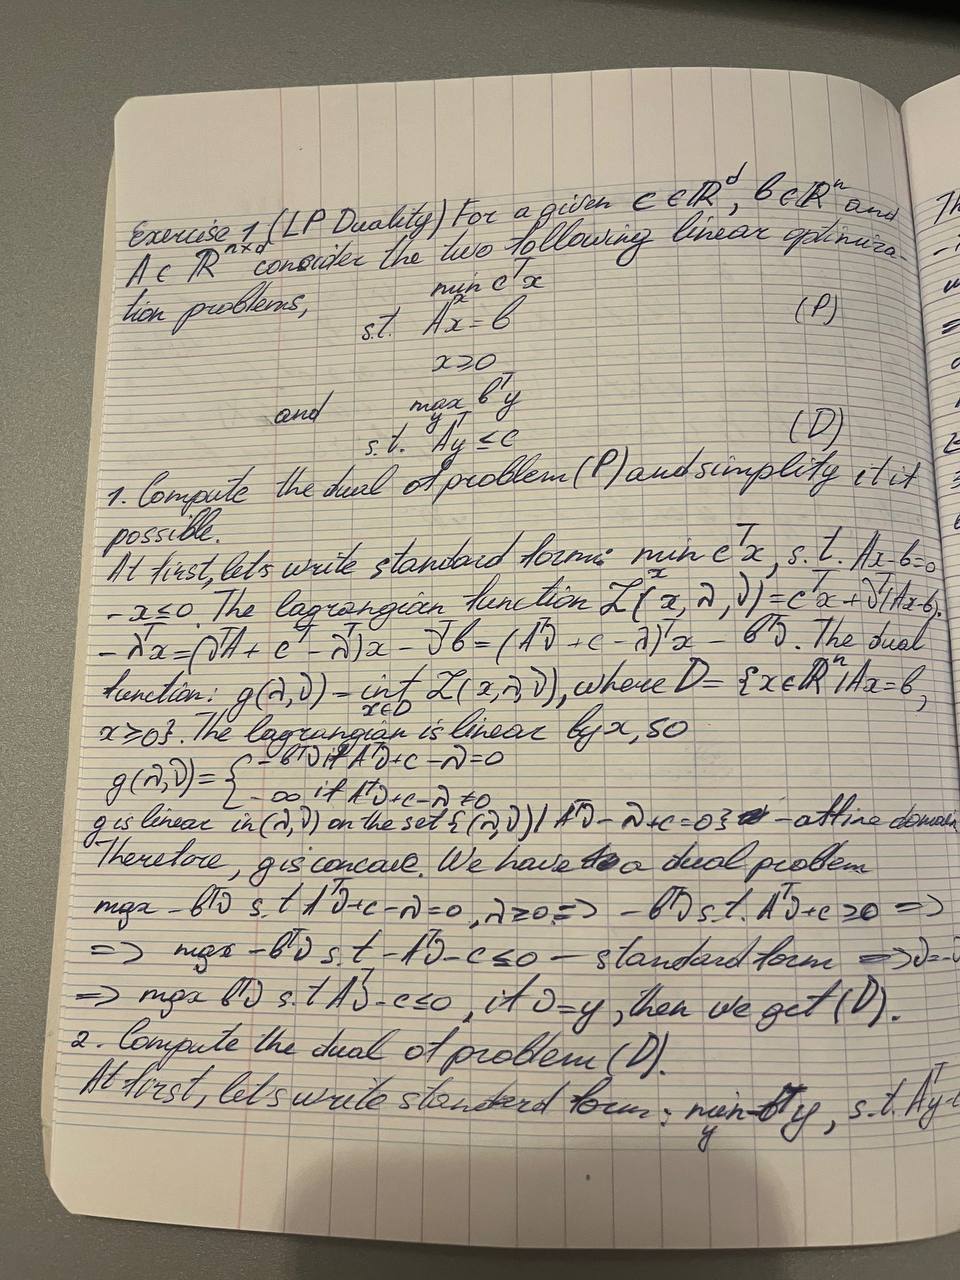 Exercise 1 (LP Duality) For a given c ∈ ℝ^d, b ∈ ℝ^n and
A ∈ ℝ^{n×d} consider the two following linear optimiza-
tion problems,
min_x c^T x
s.t. Ax = b (P)
x ≥ 0
and max_y b^T y
s.t. A^T y ≤ c (D)
1. Compute the dual of problem (P) and simplify it if
possible.
At first, let's write standard form: min_x c^T x, s.t. Ax-b=0
-x ≤ 0. The lagrangian function L(x, λ, ν) = c^T x + ν^T(Ax-b)-
- λ^T x = (ν^T A + c^T - λ^T)x - ν^T b = (A^T ν + c - λ)^T x - b^T ν. The dual
function: g(λ, ν) = inf_{x∈D} L(x, λ, ν), where D = {x ∈ ℝ^n | Ax = b,
x ≥ 0}. The lagrangian is linear by x, so
g(λ, ν) = { -b^T ν if A^T ν + c - λ = 0
-∞ if A^T ν + c - λ ≠ 0
g is linear in (λ, ν) on the set {(λ, ν) | A^T ν - λ + c = 0} - affine domain
Therefore, g is concave. We have a dual problem
max -b^T ν s.t A^T ν + c - λ = 0, λ ≥ 0 => -b^T ν s.t. A^T ν + c ≥ 0 =>
=> max -b^T ν s.t -A^T ν - c ≤ 0 - standard form => ν = -ν
=> max b^T ν s.t A^T ν - c ≤ 0, if ν = y, then we get (D).
2. Compute the dual of problem (D).
At first, let's write standard form: min_y -b^T y, s.t. A^T y -